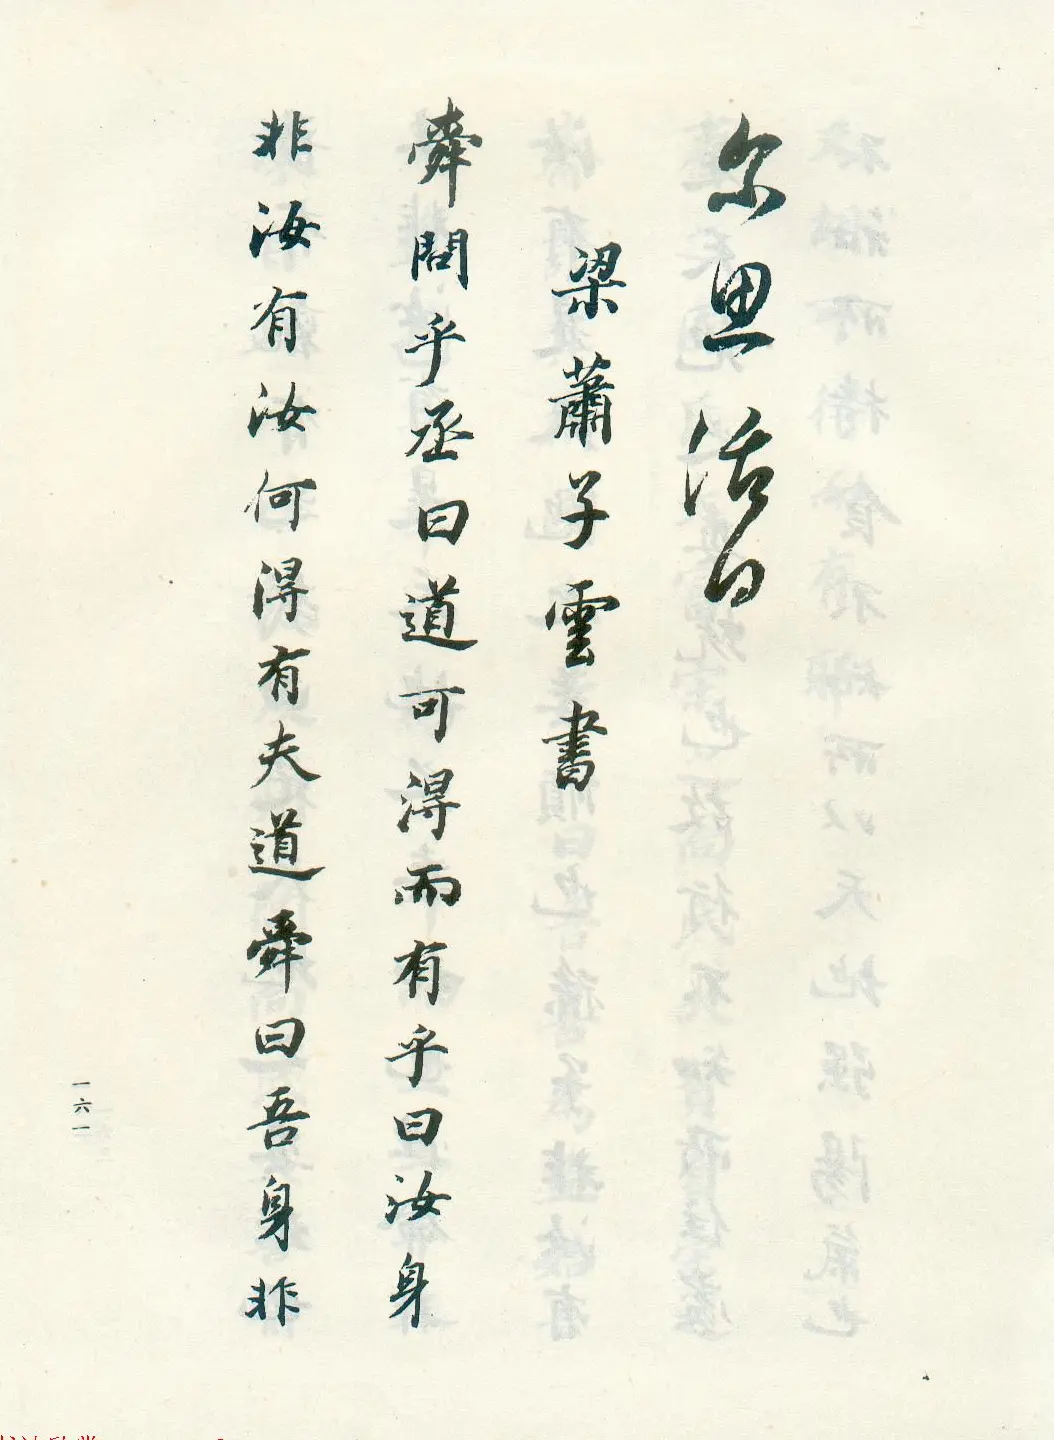 尔思活日
梁蕭子雲書
舜問乎丞曰道可得而有乎曰汝身
非汝有汝何得有夫道舜曰吾身非
一六一